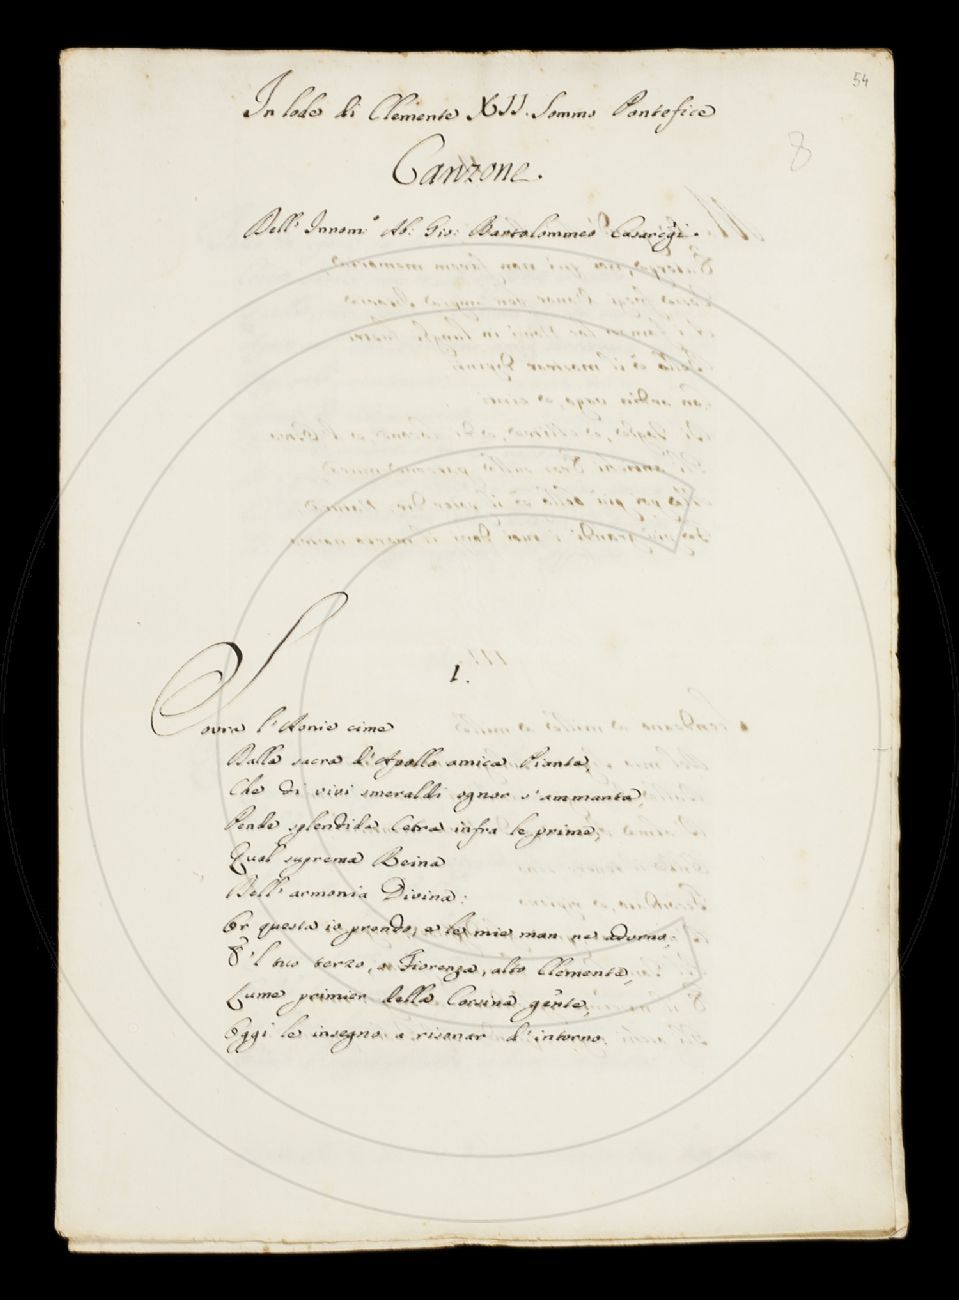 54
8
In lode di Clemente XII. Sommo Pontefice
Canzone.
Dell' Innom.º Ab: Gio: Bartolommeo Casaregi.
I.
Sovra l'Aonie cime
Dalla sacra d'Apollo amica Pianta,
Che di vivi smeraldi ognor s'ammanta,
Pende splendida Cetra infra le prime,
Qual suprema Reina
Dell' armonia Divina:
Or questa io prendo, e le mie man ne adorno;
E 'l tuo terzo, o Fiorenza, alto Clemente,
Lume primier della Corsina gente,
Oggi le insegno a risonar d'intorno.